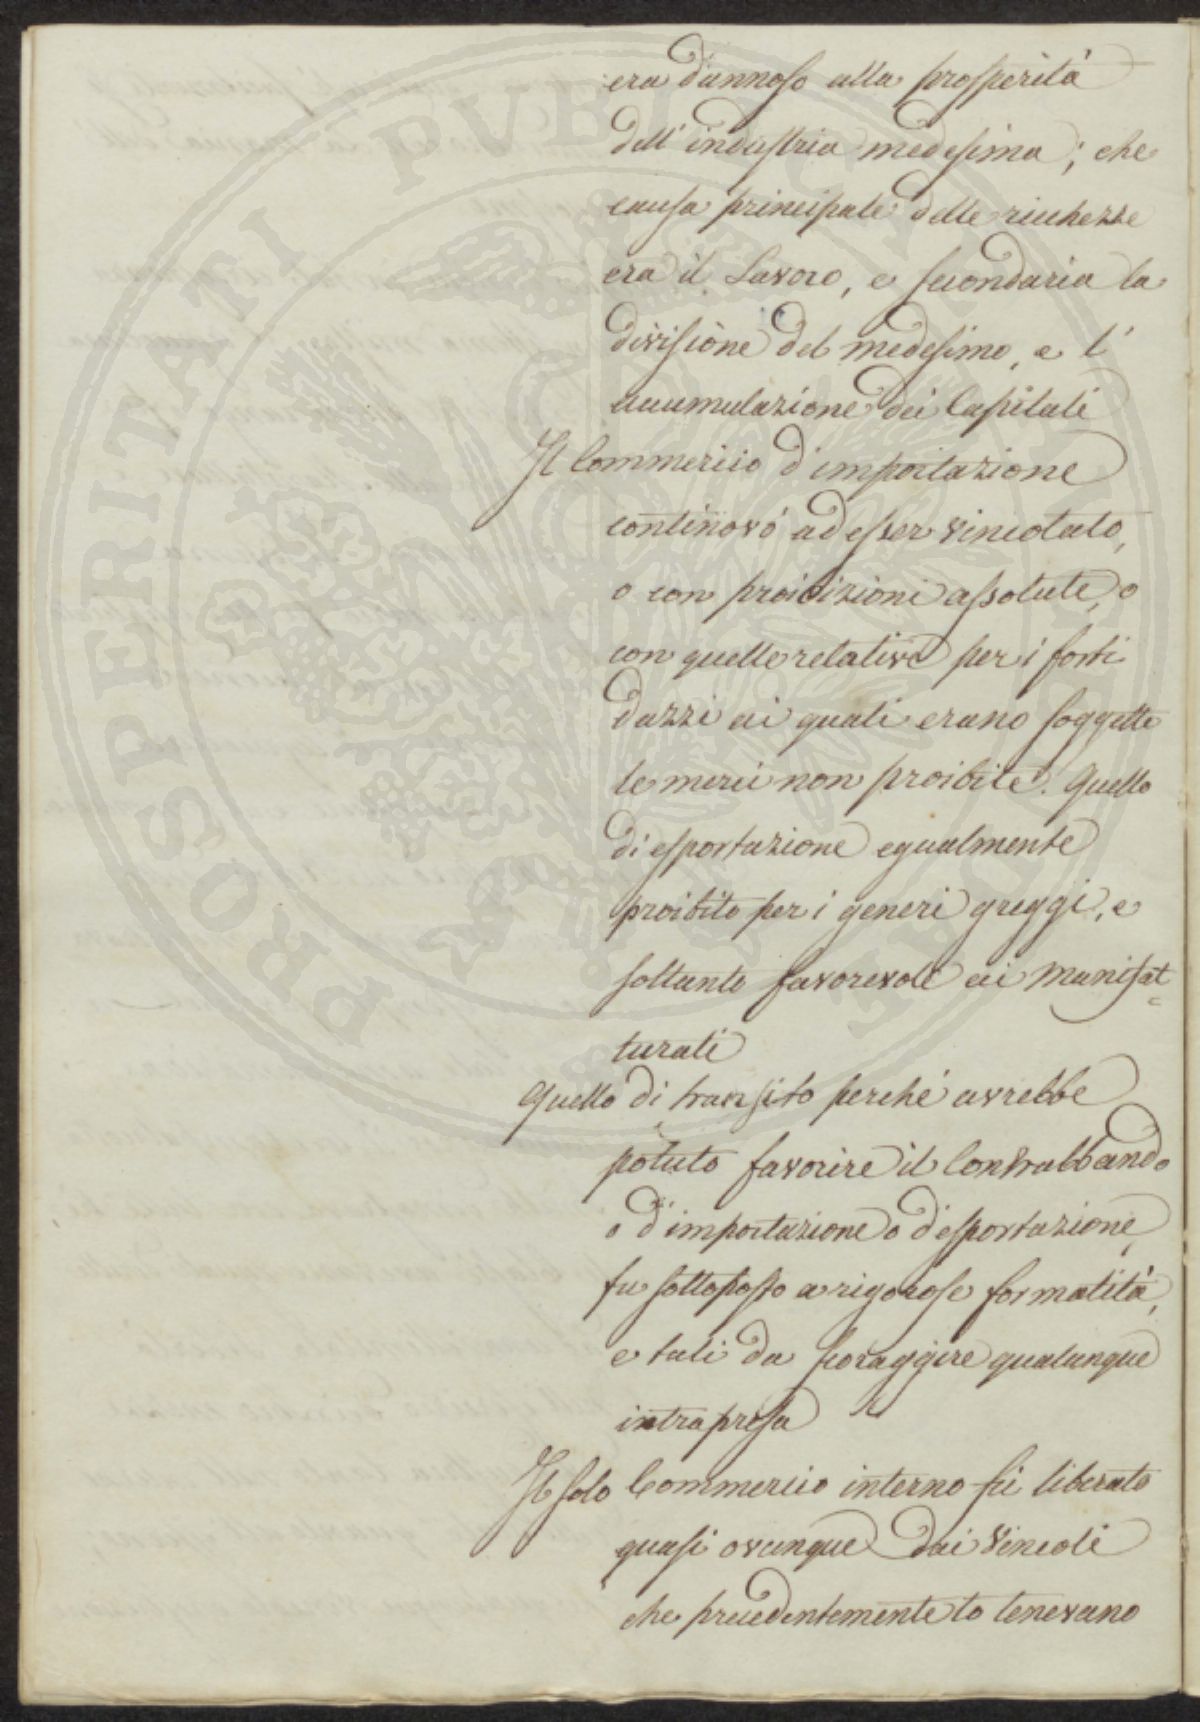 era dannoso alla prosperità
dell'industria medesima; che
causa principale delle ricchezze
era il Lavoro, e secondaria la
divisione del medesimo, e l'
accumulazione dei Capitali
Il Commercio d'importazione
continovò ad esser vincolato,
o con proibizioni assolute, o
con quelle relative per i forti
dazzi ai quali erano soggette
le merci non proibite. Quello
di esportazione egualmente
proibito per i generi greggi, e
soltanto favorevole ai Manifat
turati
Quello di transito perché avrebbe
potuto favorire il Contrabbando
o d'importazione o d'esportazione,
fu sottoposto a rigorose formalità,
e tali da scoraggire qualunque
intrapresa
Il solo Commercio interno fù liberato
quasi ovunque dai Vincoli
che precedentemente lo tenevano
PROSPERITATI PVBLICAE AVGENDAE